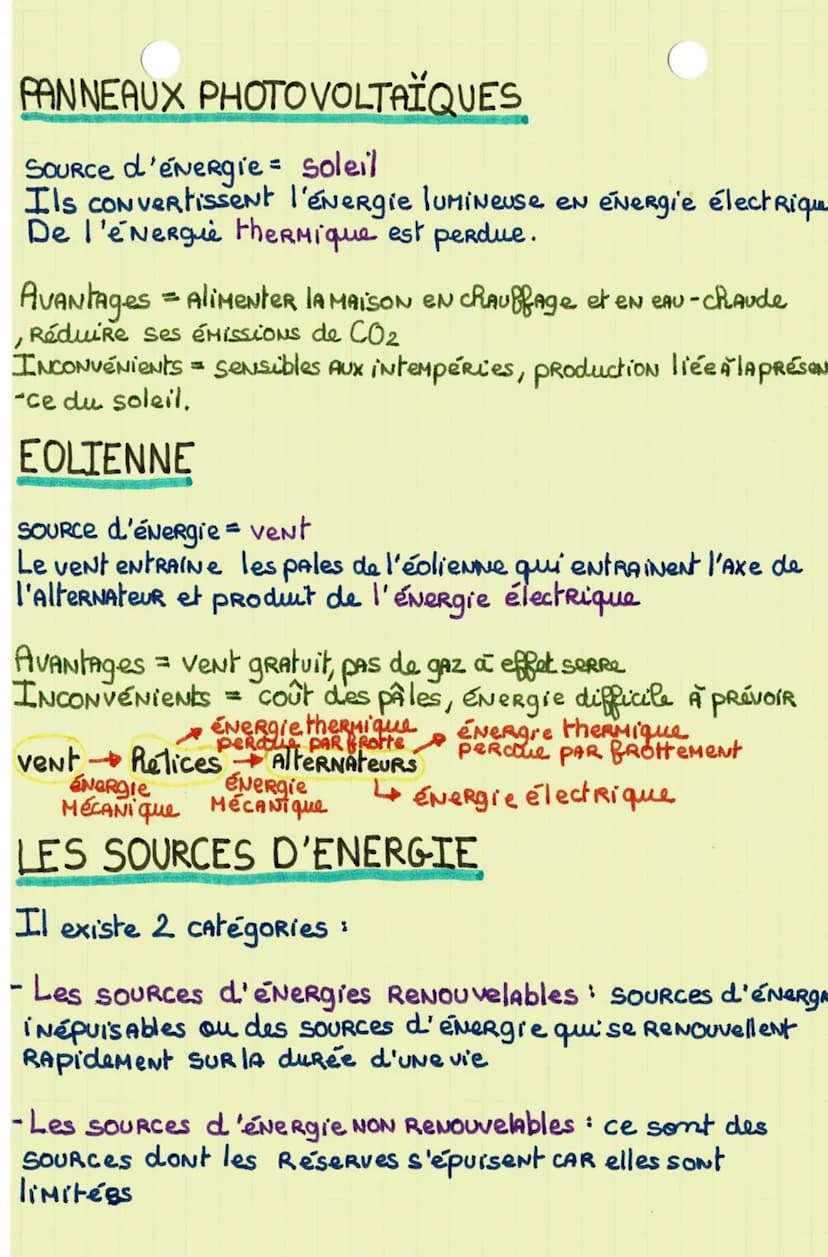 PANNEAUX PHOTOVOLTAÏQUES
Source d'énergie = soleil
Ils convertissent l'énergie lumineuse en énergie électrique
De l'énergie thermique est perdue.
Avantages = Alimenter la maison en chauffage et en eau-chaude
, Réduire ses émissions de CO2
Inconvénients = sensibles aux intempéries, production liée à la présen
-ce du soleil.
EOLIENNE
Source d'énergie = vent
Le vent entraîne les pales de l'éolienne qui entrainent l'axe de
l'alternateur et produit de l'énergie électrique
Avantages = vent gratuit, pas de gaz à effet serre
Inconvénients = coût des pâles, énergie difficile à prévoir
énergie thermique perdue par frotte
énergie thermique perdue par frottement
vent → Relices → Alternateurs
énergie mécanique énergie mécanique
énergie électrique
LES SOURCES D'ENERGIE
Il existe 2 catégories :
- Les sources d'énergies renouvelables : sources d'énergi
inépuisables ou des sources d'énergie qui se renouvellent
rapidement sur la durée d'une vie
- Les sources d'énergie non renouvelables : ce sont des
sources dont les réserves s'épuisent car elles sont
limitées